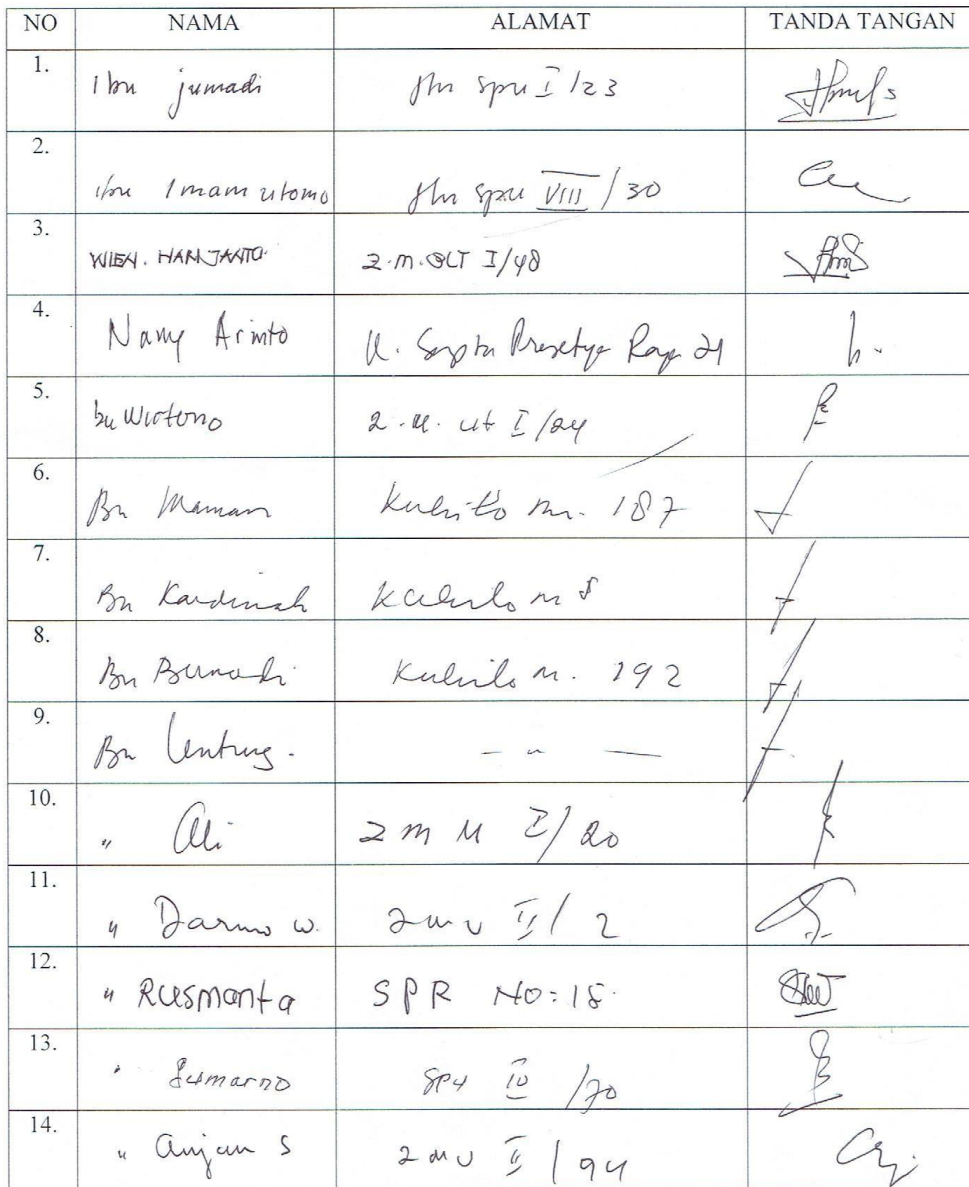 NO NAMA ALAMAT TANDA TANGAN
1. Ibu jumadi Jln spu I /23
2. ibu Imam utomo Jln spu VIII /30
3. WIEN. HARIJANTO. 2.m. I/48
4. Nany Arinto Prasetya Raya 21
5. bu Wirtono 2.M. ut I/24
6. Bu Maman 187
7. Bu Kardinah
8. Bu 192
9. Bu Untung. — " —
10. " Ali 2 m U I/20
11. " Darmo w. 2 m U II/2
12. " Rusmanta SPR NO: 18.
13. " Sumarno SPU IV /70
14. " Anjan S 2 M U II /94